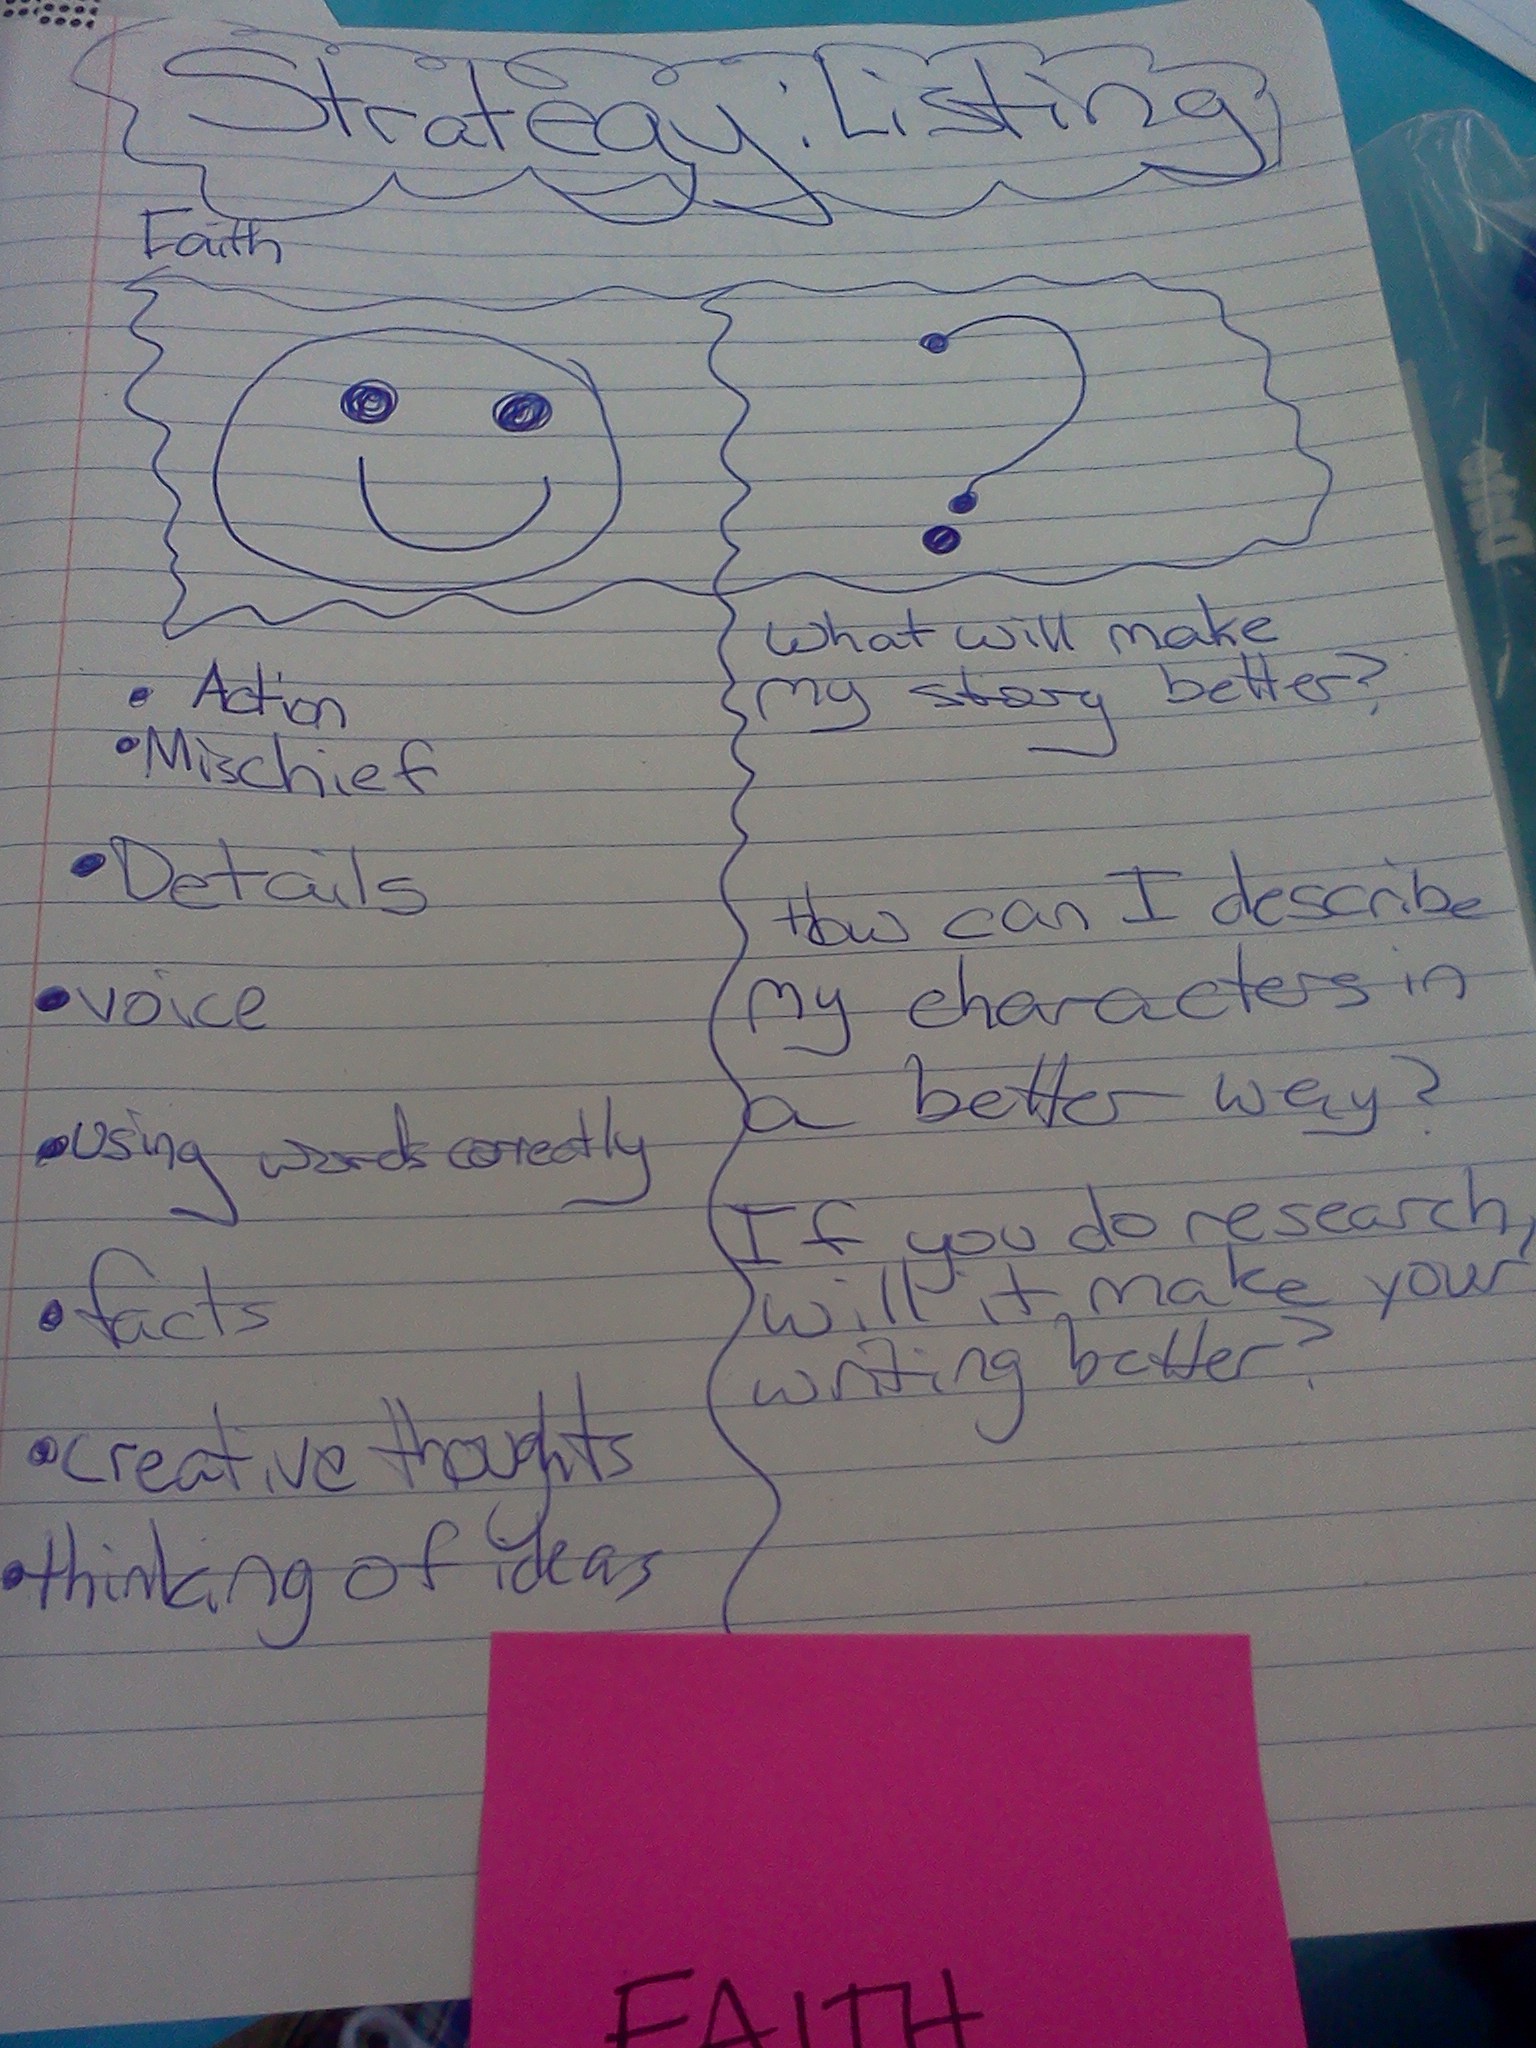 Strategy: Listing
Faith
• Action
• Mischief
• Details
• voice
• using words correctly
• facts
• creative thoughts
• thinking of ideas
What will make
my story better?
How can I describe
my characters in
a better way?
If you do research,
will it make your
writing better?
FAITH